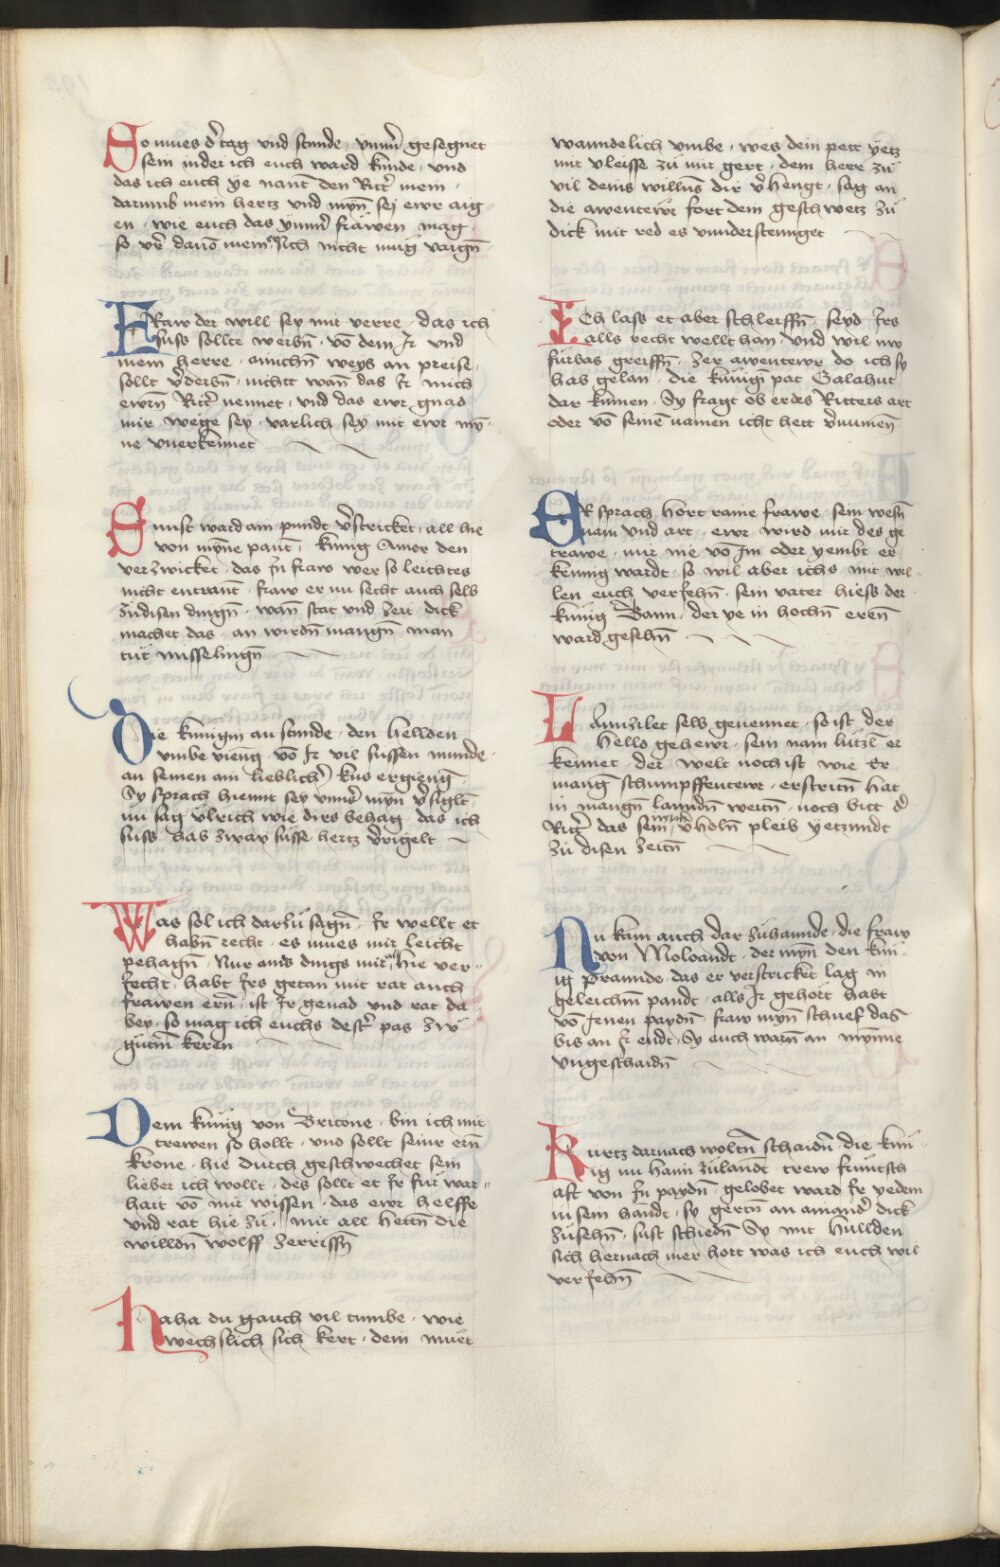 So mues d̕ tag vnd stunde · ymm̕ gesegnet
sein in der ich euch ward kunde · vnd
das ich euch ye nant den Ritt̕ mein ·
darumb mein hertz vnd myn̄ sey ewr aig
en · wie euch das ymm̕ frawen mag
so v̕r dauō mein Ich nicht mug
FRaw der will sey mir verre · das ich
suss sollte werbn̄ · vō dem Ir vnd
mein herre · annichn̄ weys an preise ·
sollt v̕derbn̄ · nichtt wan̄ das Ir mich
ewrn̄ Ritt̕ nennet · vnd das ewr gnad
mir wege sey · varlich sey mit ewr mȳ
ne vnerkennet
Sunst ward am pundt v̕stricket · all hie
von myn̄e pant · kunig Amer den
verzwicket · das In fraw wer so leichtes
nicht entrant · fraw er nu secht auch selb
zu disen dingn̄ · wan̄ stat vnd zeit dick
machet das · an wirdn̄ mangn̄ man
tut misselingn̄
Die kunigin an stunde · den hellden
vmbe vieng · vō Ir vil sussen munde ·
an seinen am lieblich̕ kus ergieng ·
Sy sprach hiemit sey ymm̕ myn̄ v̕siglt ·
nu sag vlrich wie dirs behag · das ich
suss das zway susse hertz v̕rigelt
Was sol ich darzu sagn̄ · Ir wellt et
habn̄ recht · es mues mir leicht
pehagn̄ · Nur ains dings mir hie ver
secht · habt Irs getan mit rat auch
frawen ern̄ · ist Ir genad vnd rat da
bey · so mag ich euchs dest̕ pas zw
gutm̄ keren
Dem kunig von Britone · bin ich mit
trewen so hollt · vnd sollt seinr ern̄
krone · hie durch geschwechet sein
lieber ich wollt · des sollt et Ir fur war
hait vō mir wissen · das ewr helffe
vnd rat hie zu · mit all hettn̄ die
willdn̄ wolff zerrissn̄
Haha du gauch vil tumbe · wie
wechslich sich kert · dein muet
wanndelich vmbe · wes dein pett yetz
mit vleisse zu mir gert · dem here zu
vil deins willn̄s dir v̕hengt · sag an
die awentewr fort dem geschwetz zu
dick mit red es vnndersteniget
ICh lass et aber schleiffn̄ · seyd Irs
alls recht wellt han · vnd wil nw
furbas greiffn̄ · zer awentewr do ich sy
hab gelan · die kunign̄ pat Galahut
dar kumen · Sy fragt ob er des Ritters art
oder vō seinē namen icht hett v̕numen̄
ER sprach hort raine frawe · sein wesn̄
nam vnd art · ewr wird mir des ge
trawe · mir nie vō Im oder yembt er
kennig wardt · so wil aber ichs mit wil
len euch verjehn̄ · sein vater hiess der
kunig Bann · der ye in hochn̄ erenn̄
ward gesehn̄
Lannzilet selb genennet · so ist der
helld gehewr · sein nam lutzl er
kennet · der welt noch ist wie Er
mangn̄ schumpffentewr · erstritn̄ hat
in mangn̄ lanndn̄ weitn̄ · noch bitt d̕
Ritt̕ das sein nam v̕holn̄ pleib yetzundt
zu disen zeitn̄
Nu kam auch dar zuhannde · die fraw
von Moloandt · der myn̄ den kun
ig prannde · das er verstricket lag in
geleichm̄ pandt · alls Ir gehort habt
vō Jenen paydn̄ · fraw myn̄ schuef das
bis an Ir endt · Sy euch warn̄ an mynne
vngeschaidn̄
Kurtz darnach woltn̄ schaidn̄ · die kun
ig nu hann zulandt · trew fruntsch
aft von In paydn̄ · gelobet ward Ir yedem
in sein handt · sy gertn̄ an ainand̕ dick
zusehn̄ · sust schiedn̄ Sy mit hullden
sich hernach mer hort was ich euch wil
verjehn̄